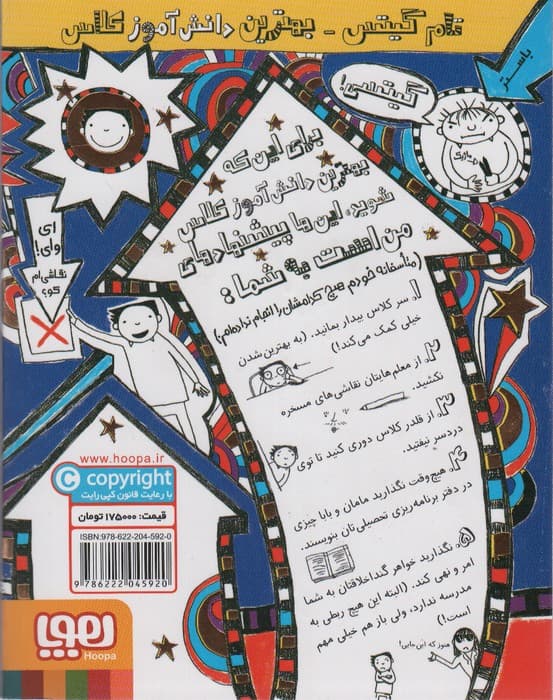 تام گیتس - بهترین دانش‌آموز کلاس
باستر
گیتسی!
برای این که
بهترین دانش‌آموز کلاس
شوید، این‌ها پیشنهادهای
من است به شما:
(متأسفانه خودم هیچ کدامشان را انجام نداده‌ام.)
۱. سر کلاس بیدار بمانید. (به بهترین شدن
خیلی کمک می‌کند!)
۲. از معلم‌هایتان نقاشی‌های مسخره
نکشید.
۳. از قلدر کلاس دوری کنید تا توی
دردسر نیفتید.
۴. هیچ‌وقت نگذارید مامان و بابا چیزی
در دفتر برنامه‌ریزی تحصیلی‌تان بنویسند.
۵. نگذارید خواهر گنداخلاقتان به شما
امر و نهی کند. (البته این هیچ ربطی به
مدرسه ندارد، ولی باز هم خیلی مهم
است!)
هنوز که این‌جایی!
ای
وای!
نقاشی‌ام
کو؟
www.hoopa.ir
© copyright
با رعایت قانون کپی‌رایت
قیمت: ۱۷۵۰۰۰ تومان
ISBN:978-622-204-592-0
9 786222 045920
هوپا
Hoopa